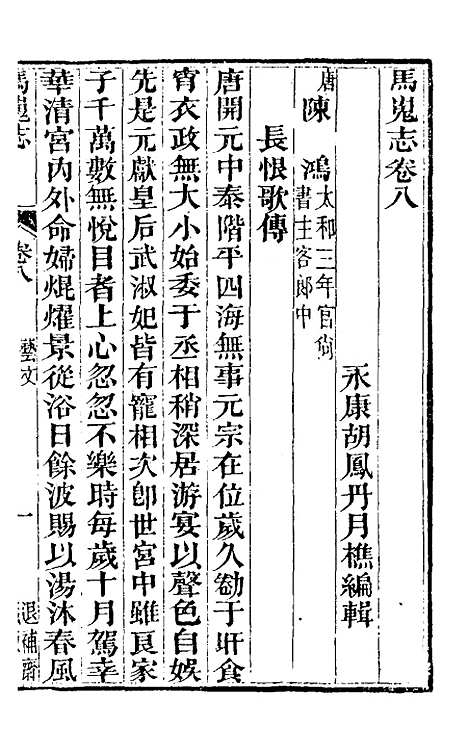 馬嵬志卷八
永康胡鳳丹月樵編輯
唐陳鴻太和三年官尚書主客郎中
長恨歌傳
唐開元中泰階平四海無事元宗在位歲久勌于旰食
宵衣政無大小始委于丞相稍深居游宴以聲色自娛
先是元獻皇后武淑妃皆有寵相次卽世宮中雖良家
子千萬數無悅目者上心忽忽不樂時每歲十月駕幸
華清宮內外命婦焜燿景從浴日餘波賜以湯沐春風
馬嵬志 卷八 藝文 一 退補齋